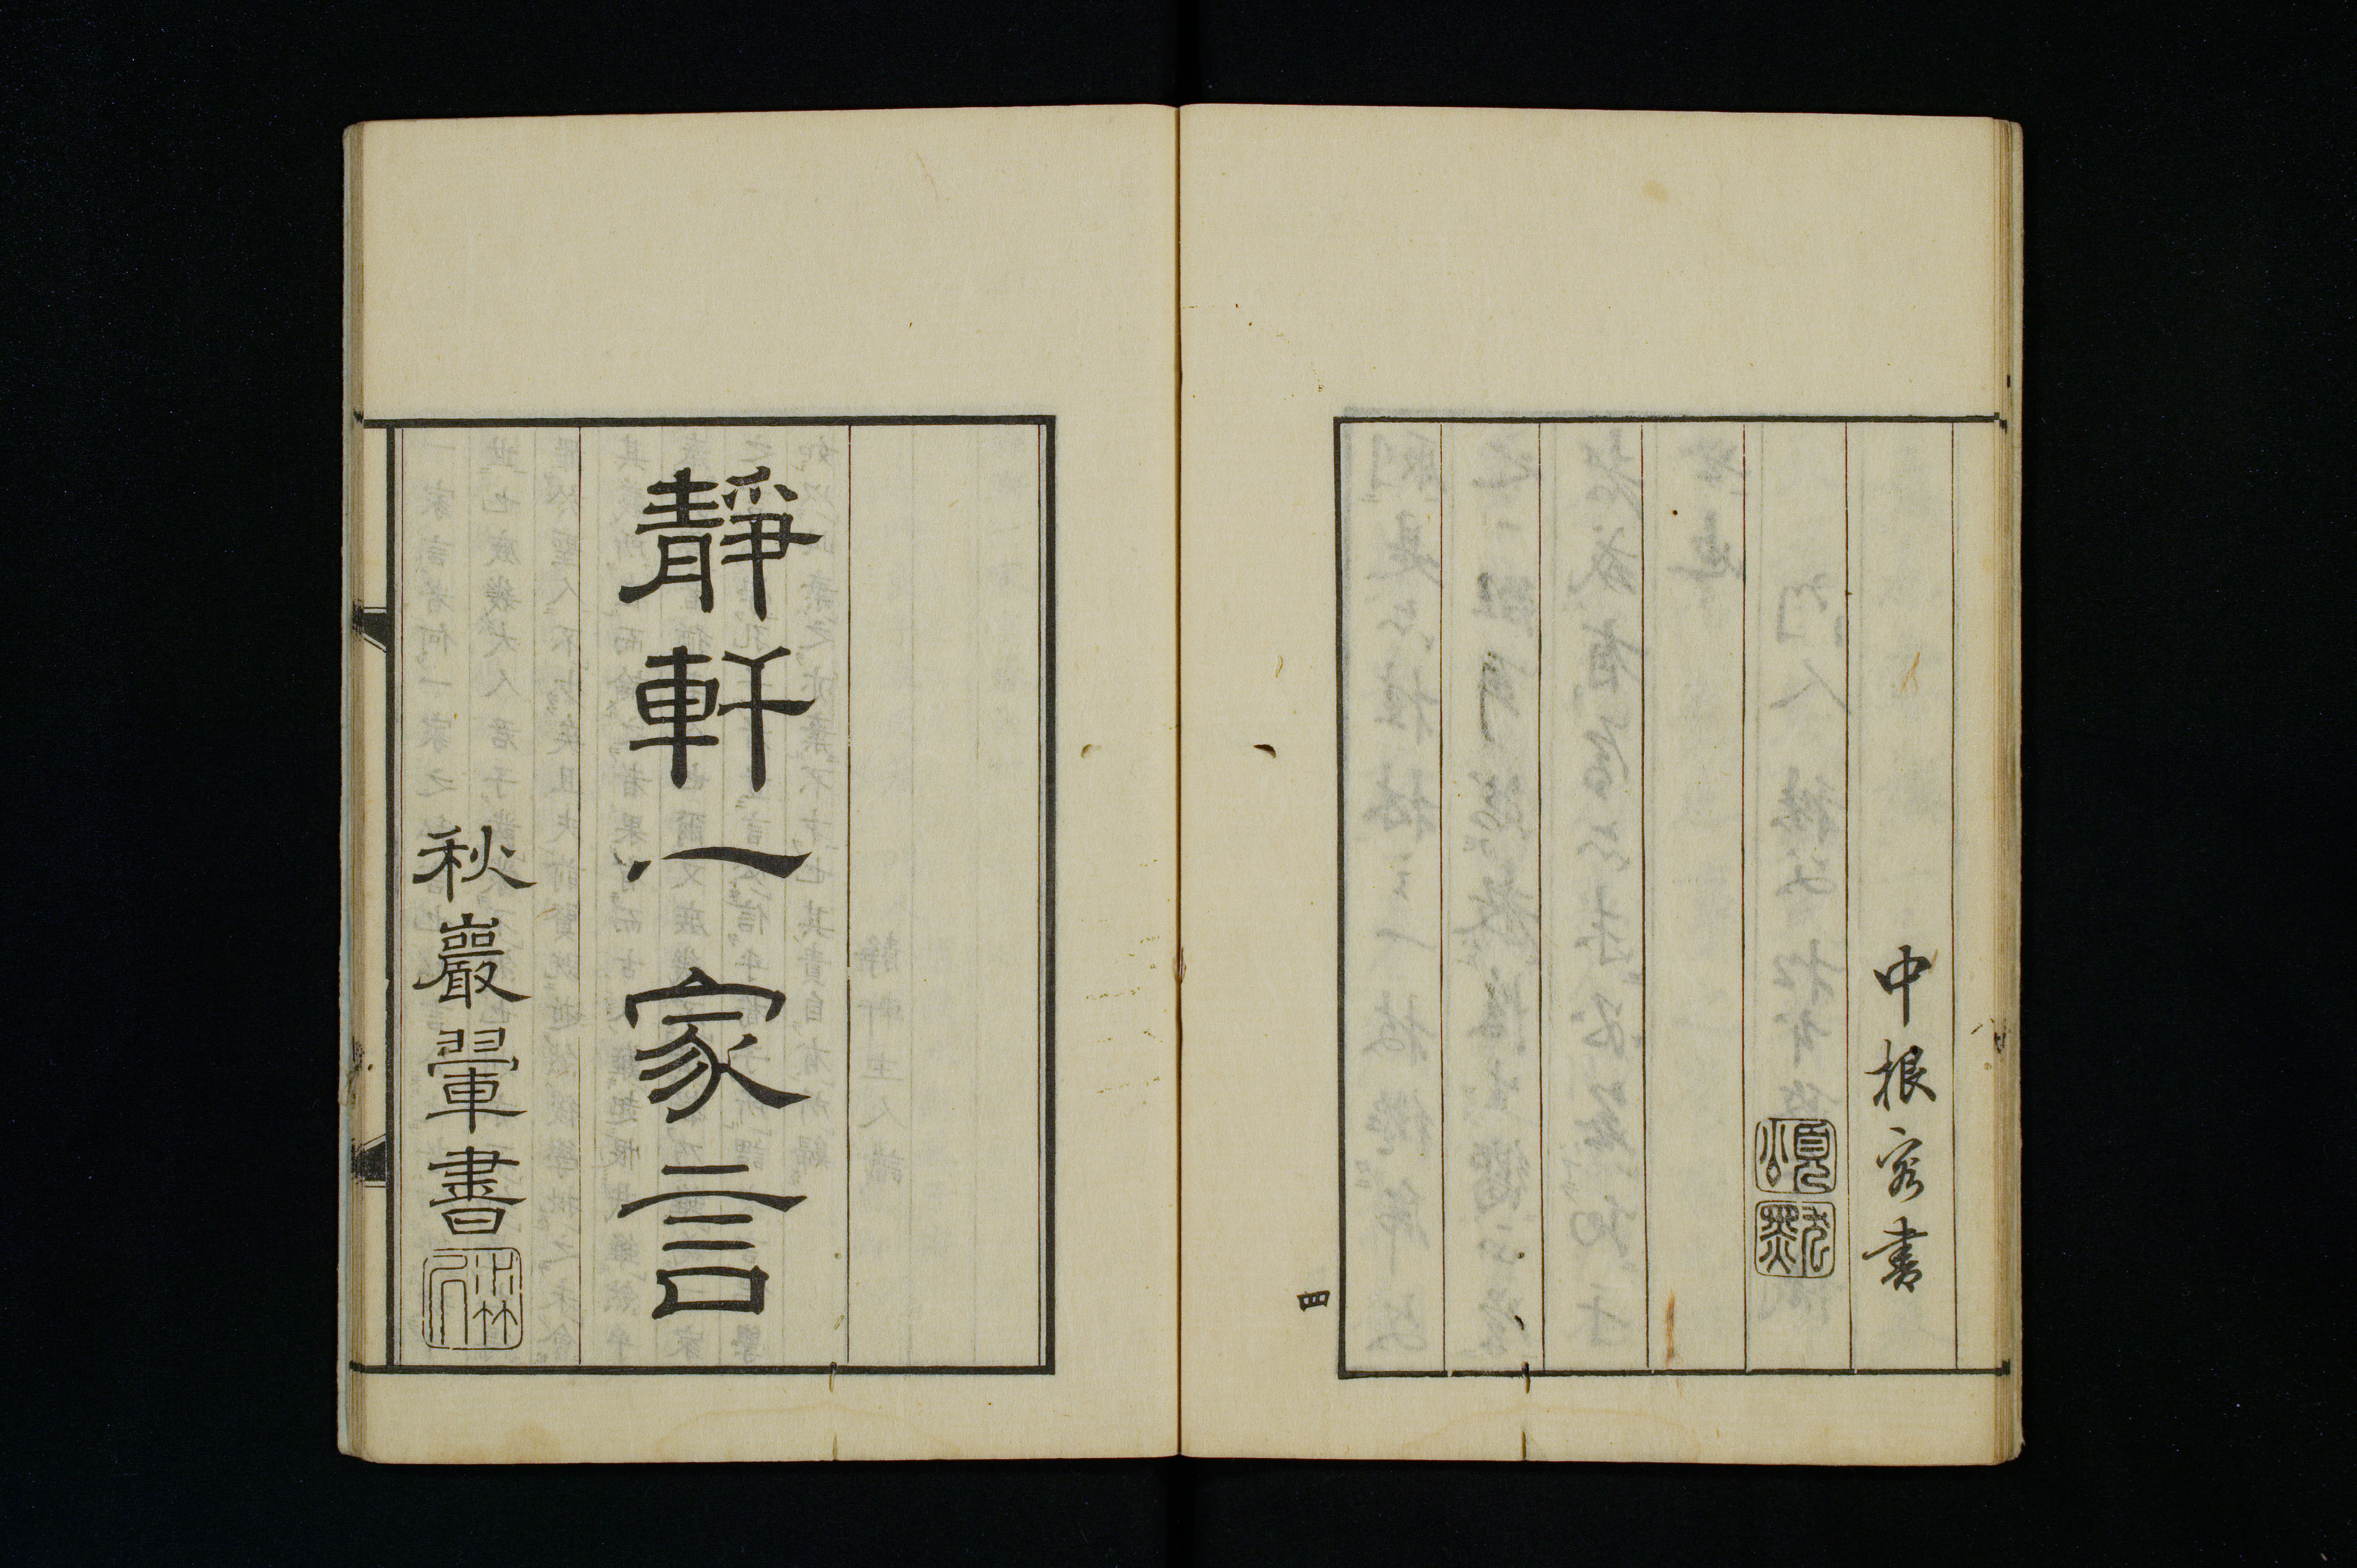 中根容書
四
靜軒一家言
秋巖翬書